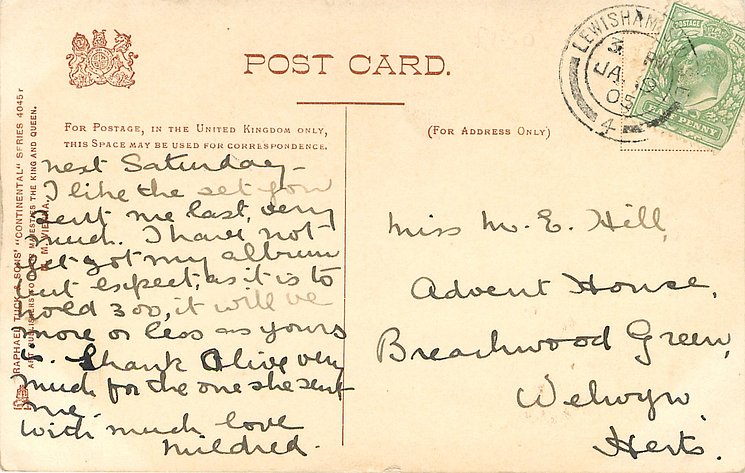 POST CARD.
LEWISHAM
JA
4
HALF PENNY
FOR POSTAGE, IN THE UNITED KINGDOM ONLY,
THIS SPACE MAY BE USED FOR CORRESPONDENCE.
(FOR ADDRESS ONLY)
RAPHAEL TUCK & SONS' "CONTINENTAL" SERIES 4045
ART PUBLISHERS TO THEIR MAJESTIES THE KING AND QUEEN.
next Saturday –
I like the set you
sent me last, very
much. I have not
yet got my album
but expect, as it is to
hold 300, it will be
more or less as yours
is. Thank Olive very
much for the one she sent
me.
With much love
Mildred.
Miss M. E. Hill,
Advent House,
Breachwood Green,
Welwyn,
Herts.